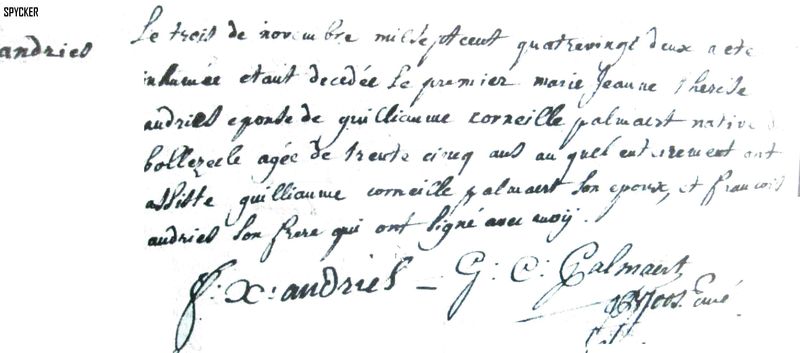 SPYCKER
andries
Le trois de novembre mil sept cent quatrevingt deux a ete
inhumée etant decedée le premier marie Jeanne therese
andries epouse de guilliaume corneille palmaert native d
bollezeele agée de trente cinq ans au quel enterrement ont
assiste guilliaume corneille palmaert son epoux, et francois
andries son frere qui ont signé avec moÿ.
f: X: andries – G: C: Palmaert
Curé